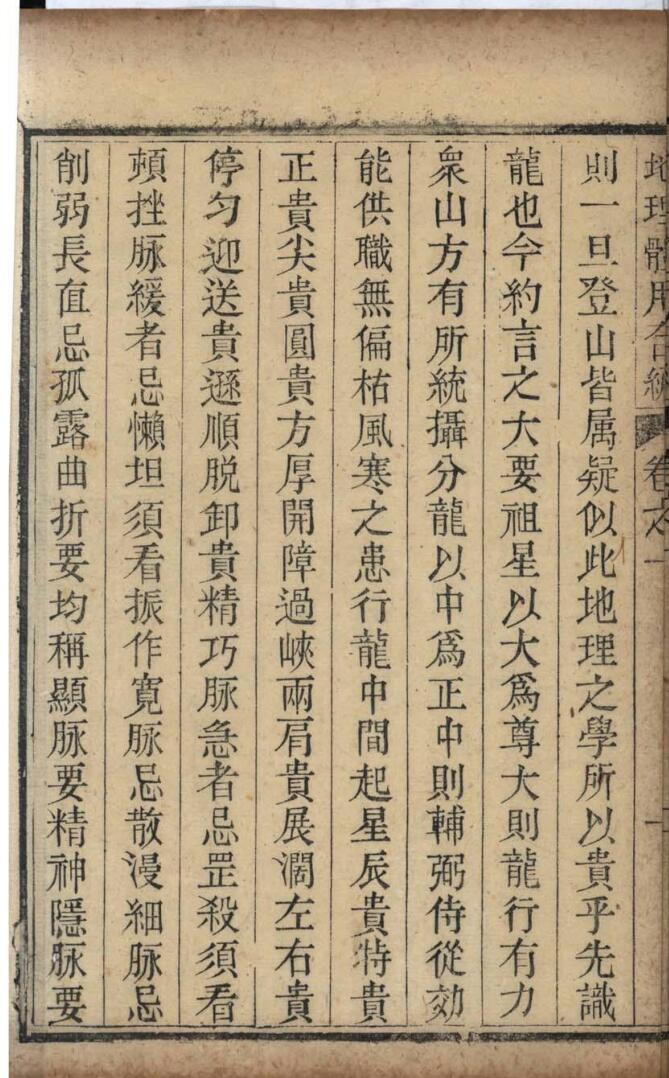 地理體用合編 卷之一 一
則一旦登山皆属疑似此地理之學所以貴乎先識
龍也今約言之大要祖星以大爲尊大則龍行有力
衆山方有所統攝分龍以中爲正中則輔弼侍從効
能供職無偏枯風寒之患行龍中間起星辰貴特貴
正貴尖貴圓貴方厚開障過峽兩肩貴展濶左右貴
停匀迎送貴遜順脱卸貴精巧脉急者忌罡殺須看
頓挫脉緩者忌懶坦須看振作寛脉忌散漫細脉忌
削弱長直忌孤露曲折要均稱顯脉要精神隱脉要